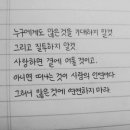 누구에게도 많은것을 기대하지 말것
그리고 질투하지 말것
사랑하면 곁에 머물 것이고,
아니면 떠나는 것이 사람의 인연이다
그러니 많은것에 연연하지 마라